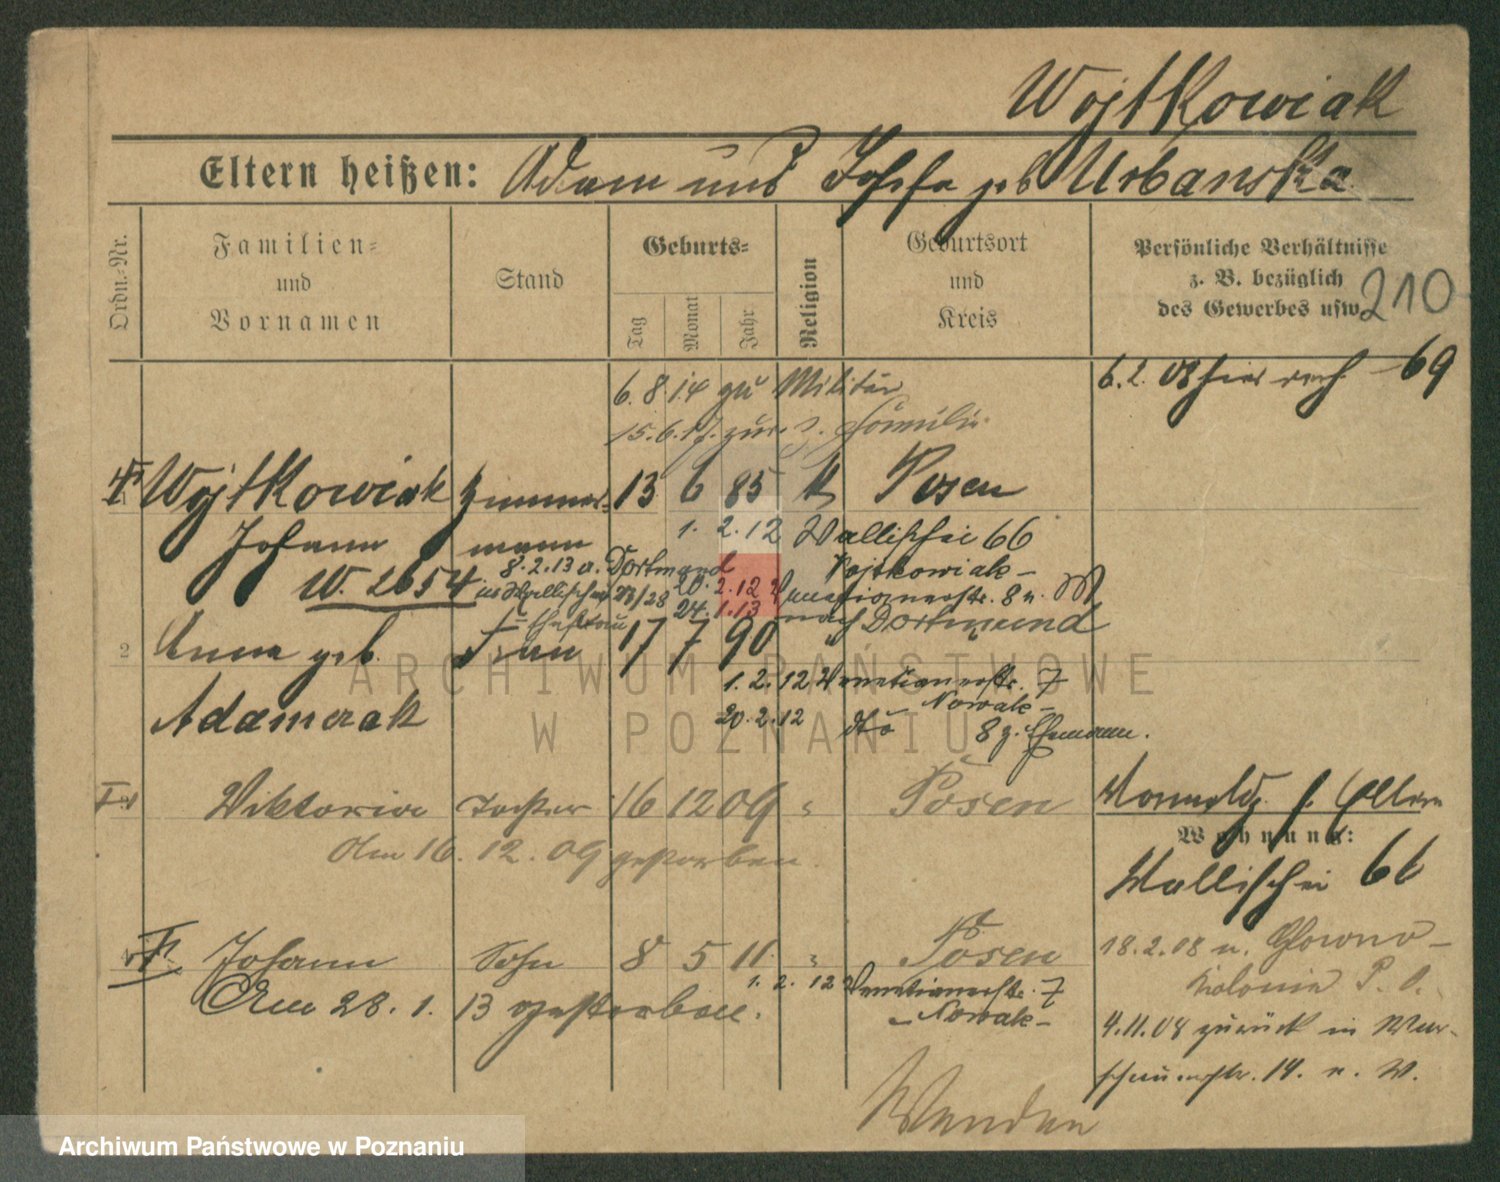 Wojtkowiak
Eltern heißen: Adam und Josefa geb Urbanska
Ordn.-Nr.
Familien-
und
Vornamen
Stand
Geburts-
Tag
Monat
Jahr
Religion
Geburtsort
und
Kreis
Persönliche Verhältnisse
z. B. bezüglich
des Gewerbes usw.
210
6. 8. 14 zu Militär
15. 6. 17. zur. z. Familie
6. 2. 08 hier nach 69
1 Wojtkowiak Zimmer- 13 6 85 k Posen
Johann mann 1. 2. 12 Wallischei 66
8. 2. 13 a. Dortmund Wojtkowiak-
W. 2654 Wallischei 73/28 20. 2. 12 Venetianerstr. 8
24. 1. 13 nach Dortmund
Ehefrau
2 Anna geb. Frau 17 7 90 "
Adamczak 1. 2. 12 Venetianerstr. 7
- Nowak -
20. 2. 12 dto 8 z. Ehemann.
Viktoria Tochter 16 12 09 " Posen
Am 16. 12. 09 gestorben.
f. Eltern
Wohnung:
Wallischei 66
Johann Sohn 8 5 11 " Posen
1. 2. 12 Venetianerstr. 7
Am 28. 1. 13 gestorben. - Nowak -
18. 2. 08 n. Glowno-
kolonie P. O.
4. 11. 08 zurück in War-
schauerstr. 14. n. W.
Wenden
ARCHIWUM PAŃSTWOWE
W POZNANIU
Archiwum Państwowe w Poznaniu